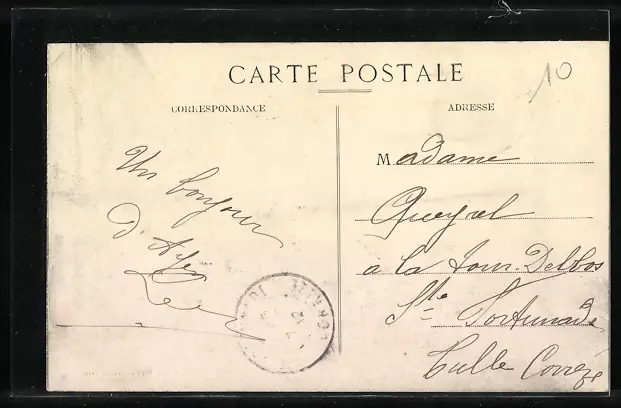 CARTE POSTALE
10
CORRESPONDANCE
ADRESSE
Un bonjour
d'
Madame
Queyrel
à la Tour Delbos
Ste Fortunade
Tulle Corrèze